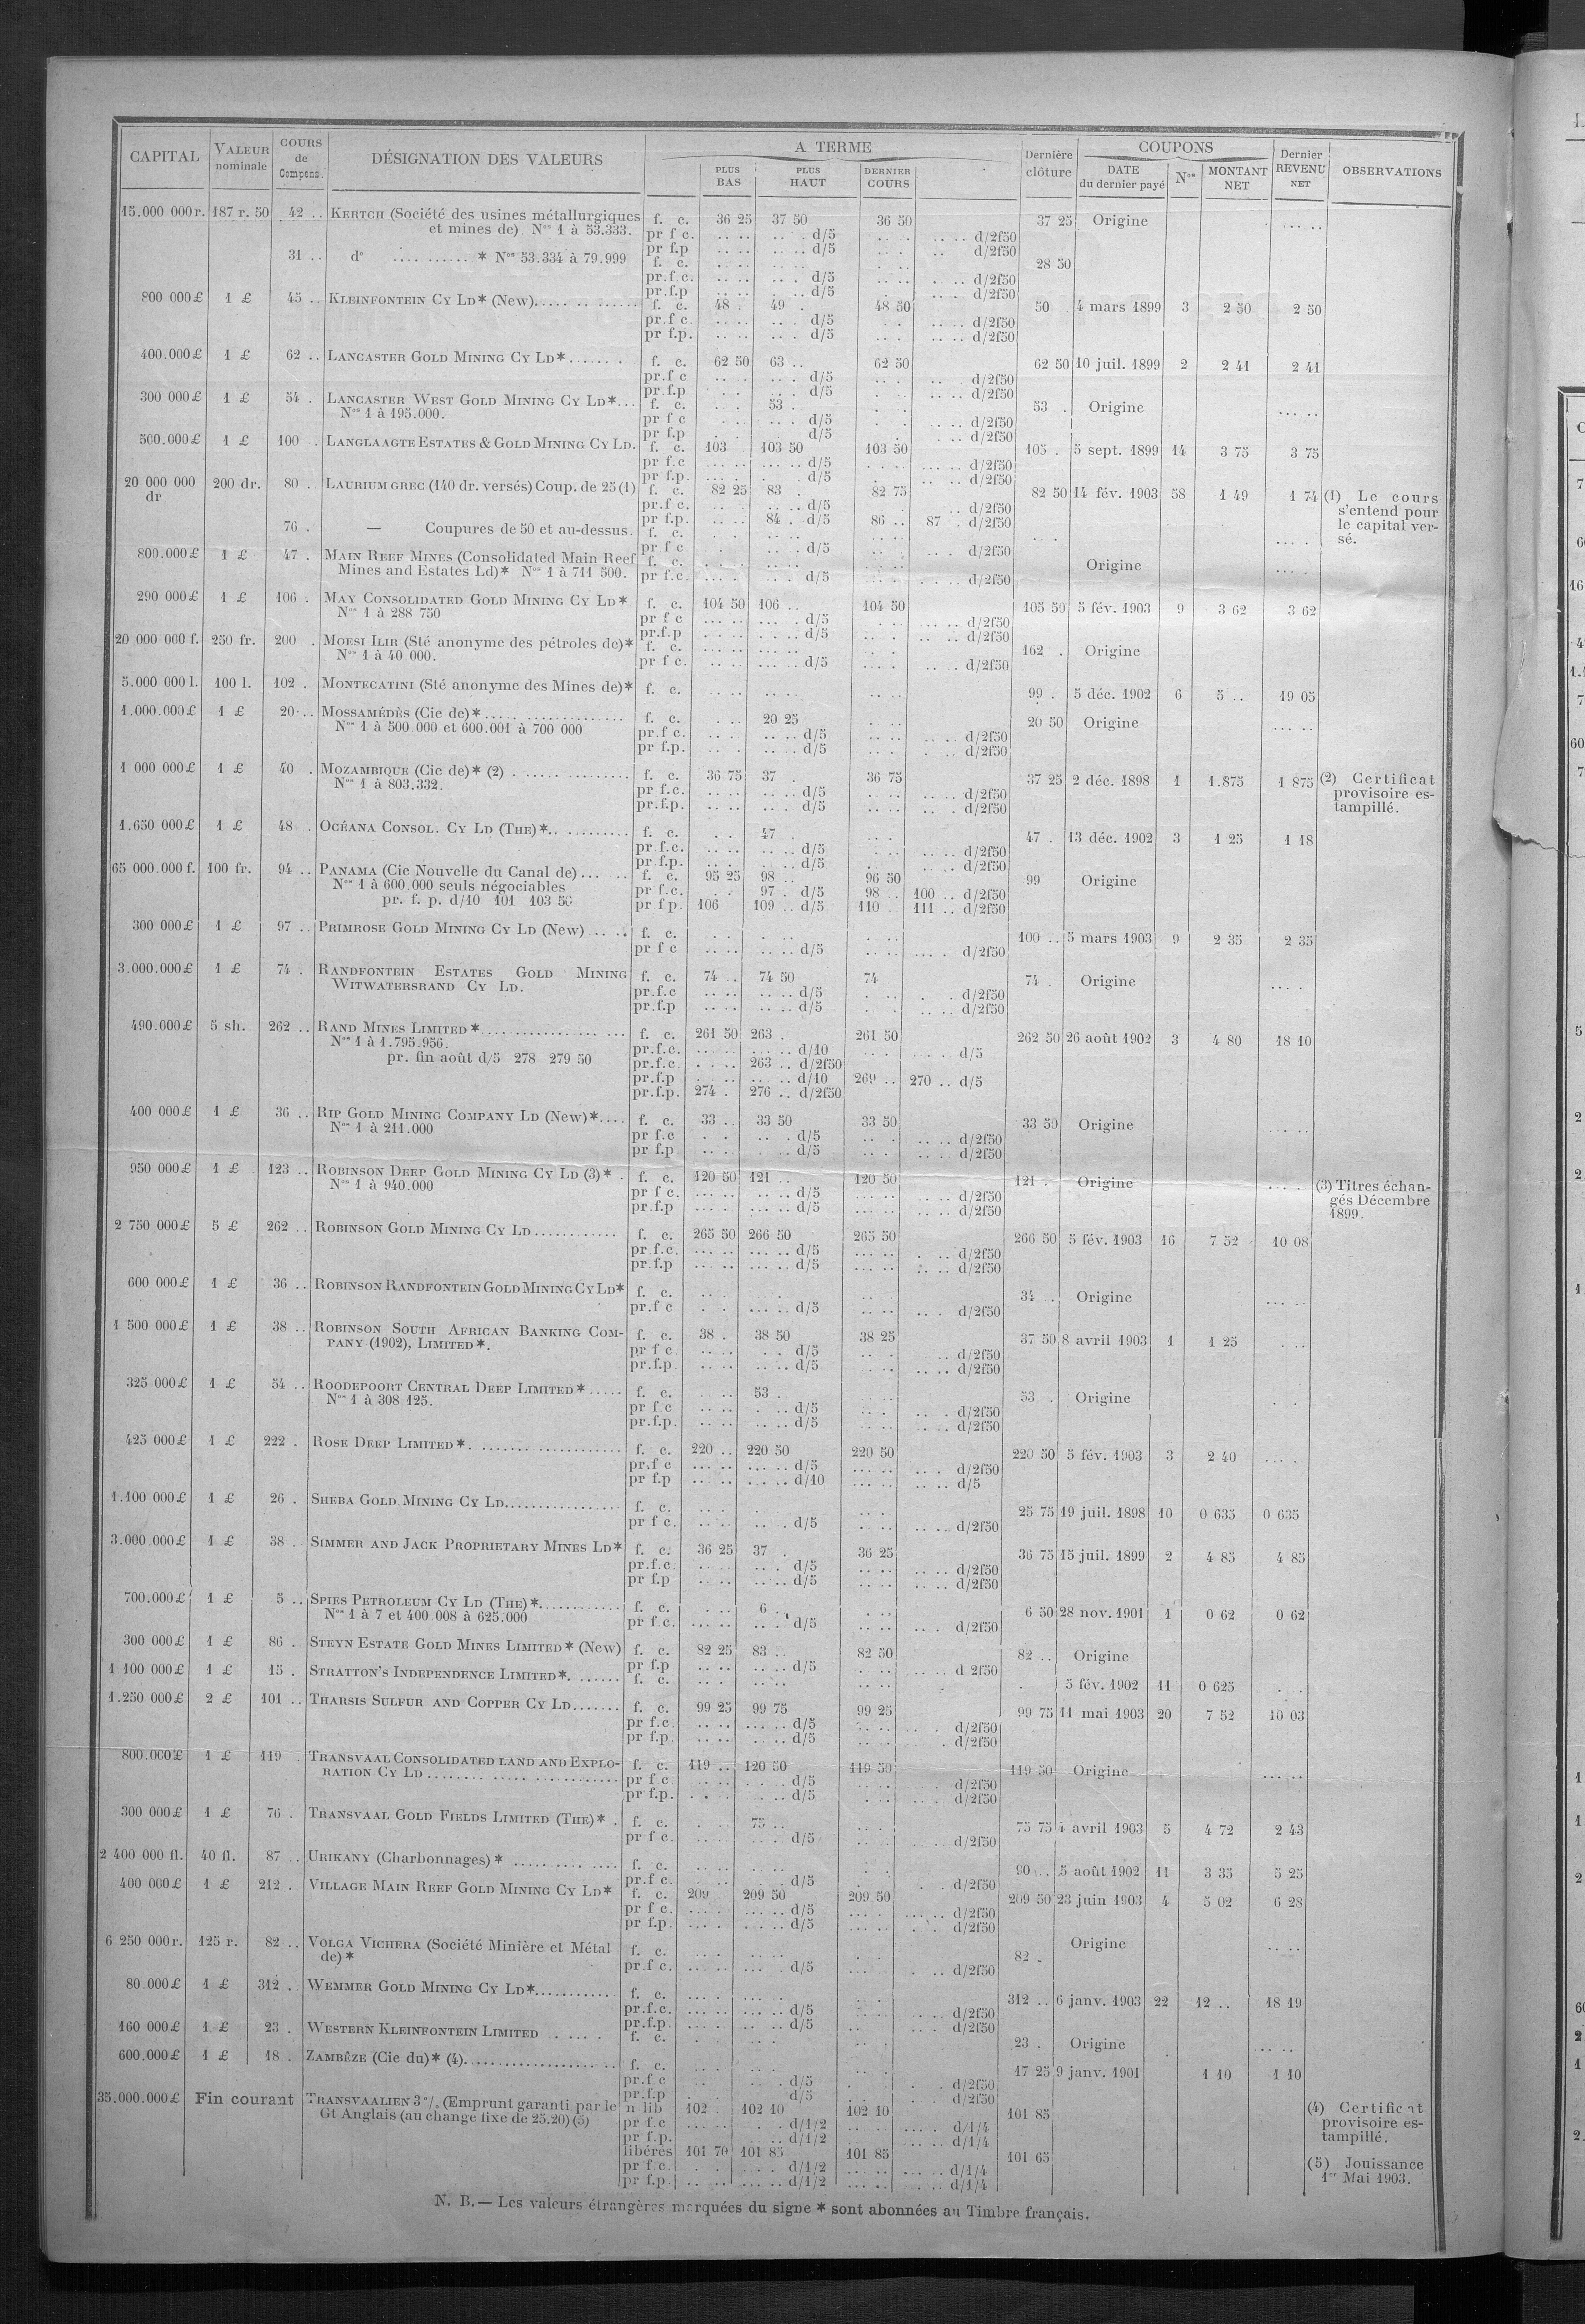 CAPITAL | VALEUR nominale | COURS de Compens. | DÉSIGNATION DES VALEURS | A TERME | PLUS BAS | PLUS HAUT | DERNIER COURS | Dernière clôture | COUPONS | DATE du dernier payé | Nos | MONTANT NET | Dernier REVENU NET | OBSERVATIONS
15.000 000r. 187 r. 50 42 .. KERTCH (Société des usines métallurgiques f. c. 36 25 37 50 36 50 37 25 Origine
et mines de) Nos 1 à 53.333. pr f c. d/5 d/2f50
pr f.p d/5 d/2f50
31 .. do .... .......... * Nos 53.334 à 79.999 f. c. 28 50
pr.f.c. d/5 d/2f50
pr.f.p d/5 d/2f50
800 000£ 1 £ 45 .. KLEINFONTEIN CY LD* (New) f. c. 48 . 49 . 48 50 50 4 mars 1899 3 2 50 2 50
pr.f c. d/5 d/2f50
pr f.p. d/5 d/2f50
400.000£ 1 £ 62 .. LANCASTER GOLD MINING CY LD* f. c. 62 50 63 .. 62 50 62 50 10 juil. 1899 2 2 41 2 41
pr.f c d/5 d/2f50
pr.f.p d/5 d/2f50
300 000£ 1 £ 54 . LANCASTER WEST GOLD MINING CY LD* f. c. 53 . 53 . Origine
Nos 1 à 195.000. pr f c d/5 d/2f50
pr f.p d/5 d/2f50
500.000£ 1 £ 100 . LANGLAAGTE ESTATES & GOLD MINING CY LD. f. c. 103 103 50 103 50 105 . 5 sept. 1899 14 3 75 3 75
pr f.c d/5 d/2f50
pr f.p. d/5 d/2f50
20 000 000 dr 200 dr. 80 . LAURIUM GREC (140 dr. versés) Coup. de 25 (1) f. c. 82 25 83 . 82 75 82 50 14 fév. 1903 58 1 49 1 74 (1) Le cours s'entend pour le capital versé.
pr.f c. d/5 d/2f50
pr f.p. 84 . d/5 86 .. 87 . d/2f50
76 . — Coupures de 50 et au-dessus. f. c.
pr f c d/5 d/2f50
800.000£ 1 £ 47 . MAIN REEF MINES (Consolidated Main Reef f. c. Origine
Mines and Estates Ld)* Nos 1 à 711 500. pr f.c. d/5 d/2f50
290 000£ 1 £ 106 . MAY CONSOLIDATED GOLD MINING CY LD* f. c. 104 50 106 .. 104 50 105 50 5 fév. 1903 9 3 62 3 62
Nos 1 à 288 750 pr f c d/5 d/2f50
pr.f.p d/5 d/2f50
20 000 000 f. 250 fr. 200 . MOESI ILIR (Sté anonyme des pétroles de)* f. c. 162 . Origine
Nos 1 à 40 000. pr f c. d/5 d/2f50
5.000 000 l. 100 l. 102 . MONTECATINI (Sté anonyme des Mines de)* f. c. 99 . 5 déc. 1902 6 5 .. 19 05
1.000.000£ 1 £ 20 .. MOSSAMÉDÈS (Cie de)* f. c. 20 25 20 50 Origine
Nos 1 à 500 000 et 600.001 à 700 000 pr.f c. d/5 d/2f50
pr f.p. d/5 d/2f50
1 000 000£ 1 £ 40 . MOZAMBIQUE (Cie de)* (2) f. c. 36 75 37 . 36 75 37 25 2 déc. 1898 1 1.875 1 875 (2) Certificat provisoire estampillé.
Nos 1 à 803.332. pr f.c. d/5 d/2f50
pr.f.p. d/5 d/2f50
1.650 000£ 1 £ 48 . OCÉANA CONSOL. CY LD (THE)* f. c. 47 . 47 . 13 déc. 1902 3 1 25 1 18
pr f.c. d/5 d/2f50
pr f.p. d/5 d/2f50
65 000.000 f. 100 fr. 94 .. PANAMA (Cie Nouvelle du Canal de) f. c. 95 25 98 .. 96 50 99 Origine
Nos 1 à 600.000 seuls négociables pr f.c. 97 . d/5 98 .. 100 .. d/2f50
pr. f. p. d/10 101 103 50 pr f p. 106 109 .. d/5 110 . 111 .. d/2f50
300 000£ 1 £ 97 .. PRIMROSE GOLD MINING CY LD (New) f. c. 100 .. 5 mars 1903 9 2 35 2 35
pr f c d/5 d/2f50
3.000.000£ 1 £ 74 . RANDFONTEIN ESTATES GOLD MINING f. c. 74 .. 74 50 74 74 . Origine
WITWATERSRAND CY LD. pr.f.c d/5 d/2f50
pr.f.p d/5 d/2f50
490.000£ 5 sh. 262 .. RAND MINES LIMITED* f. c. 261 50 263 . 261 50 262 50 26 août 1902 3 4 80 18 10
Nos 1 à 1.795.956. pr.f.c. d/10 d/5
pr. fin août d/5 278 279 50 pr.f.c. 263 .. d/2f50
pr.f.p d/10 269 .. 270 .. d/5
pr.f.p. 274 . 276 .. d/2f50
400 000£ 1 £ 36 .. RIP GOLD MINING COMPANY LD (New)* f. c. 33 .. 33 50 33 50 33 50 Origine
Nos 1 à 211.000 pr f.c d/5 d/2f50
pr f.p d/5 d/2f50
950 000£ 1 £ 123 .. ROBINSON DEEP GOLD MINING CY LD (3)* f. c. 120 50 121 .. 120 50 121 . Origine (3) Titres échangés Décembre 1899.
Nos 1 à 940.000 pr f c. d/5 d/2f50
pr.f.p d/5 d/2f50
2 750 000£ 5 £ 262 .. ROBINSON GOLD MINING CY LD f. c. 265 50 266 50 265 50 266 50 5 fév. 1903 16 7 52 10 08
pr f.c. d/5 d/2f50
pr.f.p d/5 d/2f50
600 000£ 1 £ 36 .. ROBINSON RANDFONTEIN GOLD MINING CY LD* f. c. 34 . Origine
pr.f c d/5 d/2f50
1 500 000£ 1 £ 38 .. ROBINSON SOUTH AFRICAN BANKING COM- f. c. 38 . 38 50 38 25 37 50 8 avril 1903 1 1 25
PANY (1902), LIMITED*. pr f c d/5 d/2f50
pr.f.p. d/5 d/2f50
325 000£ 1 £ 54 .. ROODEPOORT CENTRAL DEEP LIMITED* f. c. 53 . 53 . Origine
Nos 1 à 308 125. pr f.c d/5 d/2f50
pr.f.p. d/5 d/2f50
425 000£ 1 £ 222 . ROSE DEEP LIMITED* f. c. 220 .. 220 50 220 50 220 50 5 fév. 1903 3 2 40
pr.f c d/5 d/2f50
pr f.p d/10 d/5
1.100 000£ 1 £ 26 . SHEBA GOLD MINING CY LD f. c. 25 75 19 juil. 1898 10 0 635 0 635
pr f c. d/5 d/2f50
3.000.000£ 1 £ 38 . SIMMER AND JACK PROPRIETARY MINES LD* f. c. 36 25 37 . 36 25 36 75 15 juil. 1899 2 4 85 4 85
pr.f.c. d/5 d/2f50
pr f.p d/5 d/2f50
700.000£ 1 £ 5 .. SPIES PETROLEUM CY LD (THE)* f. c. 6 .. 6 50 28 nov. 1901 1 0 62 0 62
Nos 1 à 7 et 400.008 à 625.000 pr f.c. d/5 d/2f50
300 000£ 1 £ 86 . STEYN ESTATE GOLD MINES LIMITED* (New) f. c. 82 25 83 .. 82 50 82 .. Origine
pr f.p d/5 d 2f50
1 100 000£ 1 £ 15 . STRATTON'S INDEPENDENCE LIMITED* f. c. 5 fév. 1902 11 0 625
1.250 000£ 2 £ 101 .. THARSIS SULFUR AND COPPER CY LD f. c. 99 25 99 75 99 25 99 75 11 mai 1903 20 7 52 10 03
pr f.c. d/5 d/2f50
pr f.p. d/5 d/2f50
800.000£ 1 £ 119 . TRANSVAAL CONSOLIDATED LAND AND EXPLO- f. c. 119 .. 120 50 119 50 119 50 Origine
RATION CY LD pr f c. d/5 d/2f50
pr f.p. d/5 d/2f50
300 000£ 1 £ 76 . TRANSVAAL GOLD FIELDS LIMITED (THE)* f. c. 75 .. 75 75 4 avril 1903 5 4 72 2 43
pr f c. d/5 d/2f50
2 400 000 fl. 40 fl. 87 . URIKANY (Charbonnages)* f. c. 90 .. 5 août 1902 11 3 35 5 25
pr.f c. d/5 d/2f50
400 000£ 1 £ 212 . VILLAGE MAIN REEF GOLD MINING CY LD* f. c. 209 209 50 209 50 209 50 23 juin 1903 4 5 02 6 28
pr f c. d/5 d/2f50
pr f.p. d/5 d/2f50
6 250 000r. 125 r. 82 .. VOLGA VICHERA (Société Minière et Métal f. c. 82 . Origine
de)* pr.f c. d/5 d/2f50
80.000£ 1 £ 312 . WEMMER GOLD MINING CY LD* f. c. 312 .. 6 janv. 1903 22 12 .. 18 19
pr.f.c. d/5 d/2f50
pr.f.p. d/5 d/2f50
160 000£ 1 £ 23 . WESTERN KLEINFONTEIN LIMITED f. c. 23 . Origine
600.000£ 1 £ 18 . ZAMBÈZE (Cie du)* (4) f. c. 17 25 9 janv. 1901 1 10 1 10
pr.f c d/5 d/2f50
pr.f.p d/5 d/2f50
35.000.000£ Fin courant TRANSVAALIEN 3 % (Emprunt garanti par le n lib 102 . 102 10 102 10 101 85 (4) Certificat provisoire estampillé.
Gt Anglais (au change fixe de 25.20) (5) pr f.c d/1/2 d/1/4
pr f.p. d/1/2 d/1/4
libérés 101 70 101 85 101 85 101 65 (5) Jouissance 1er Mai 1903.
pr f.c. d/1/2 d/1/4
pr f.p. d/1/2 d/1/4
N. B.— Les valeurs étrangères marquées du signe * sont abonnées au Timbre français.